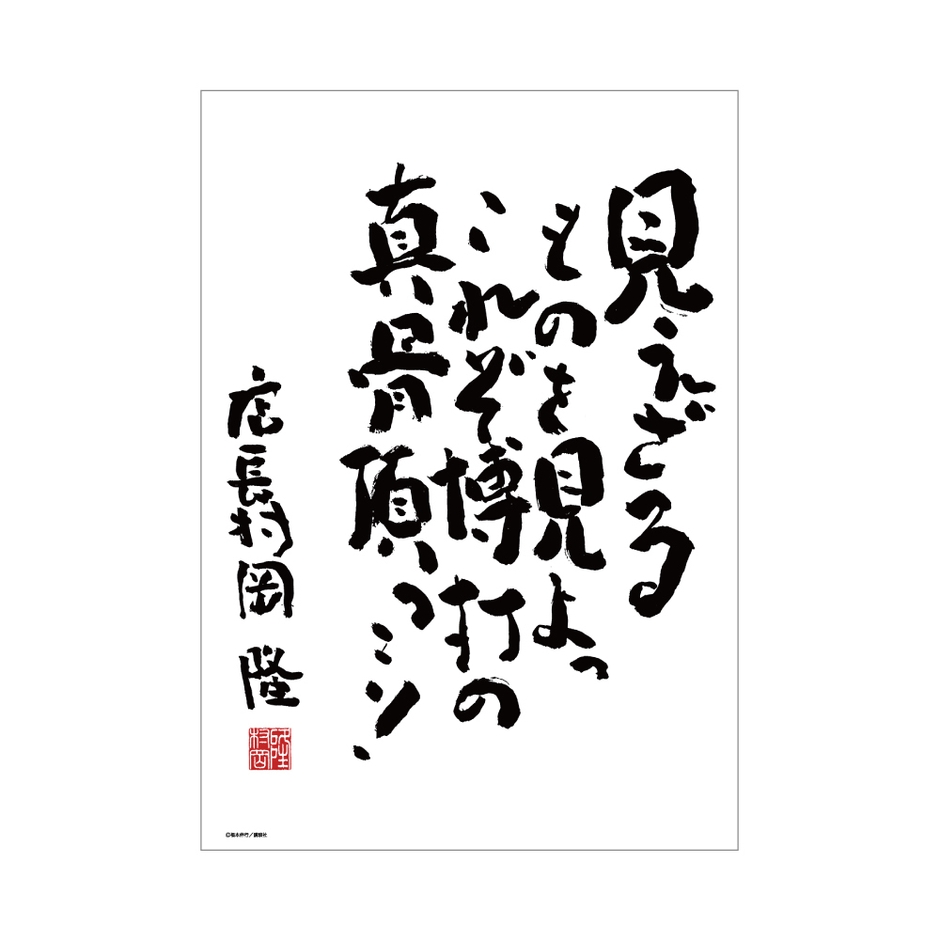 見えざる
ものを見よっ
これぞ博打の
真骨頂っ…ミソ!
店長村岡 隆
村岡隆
©福本伸行/講談社